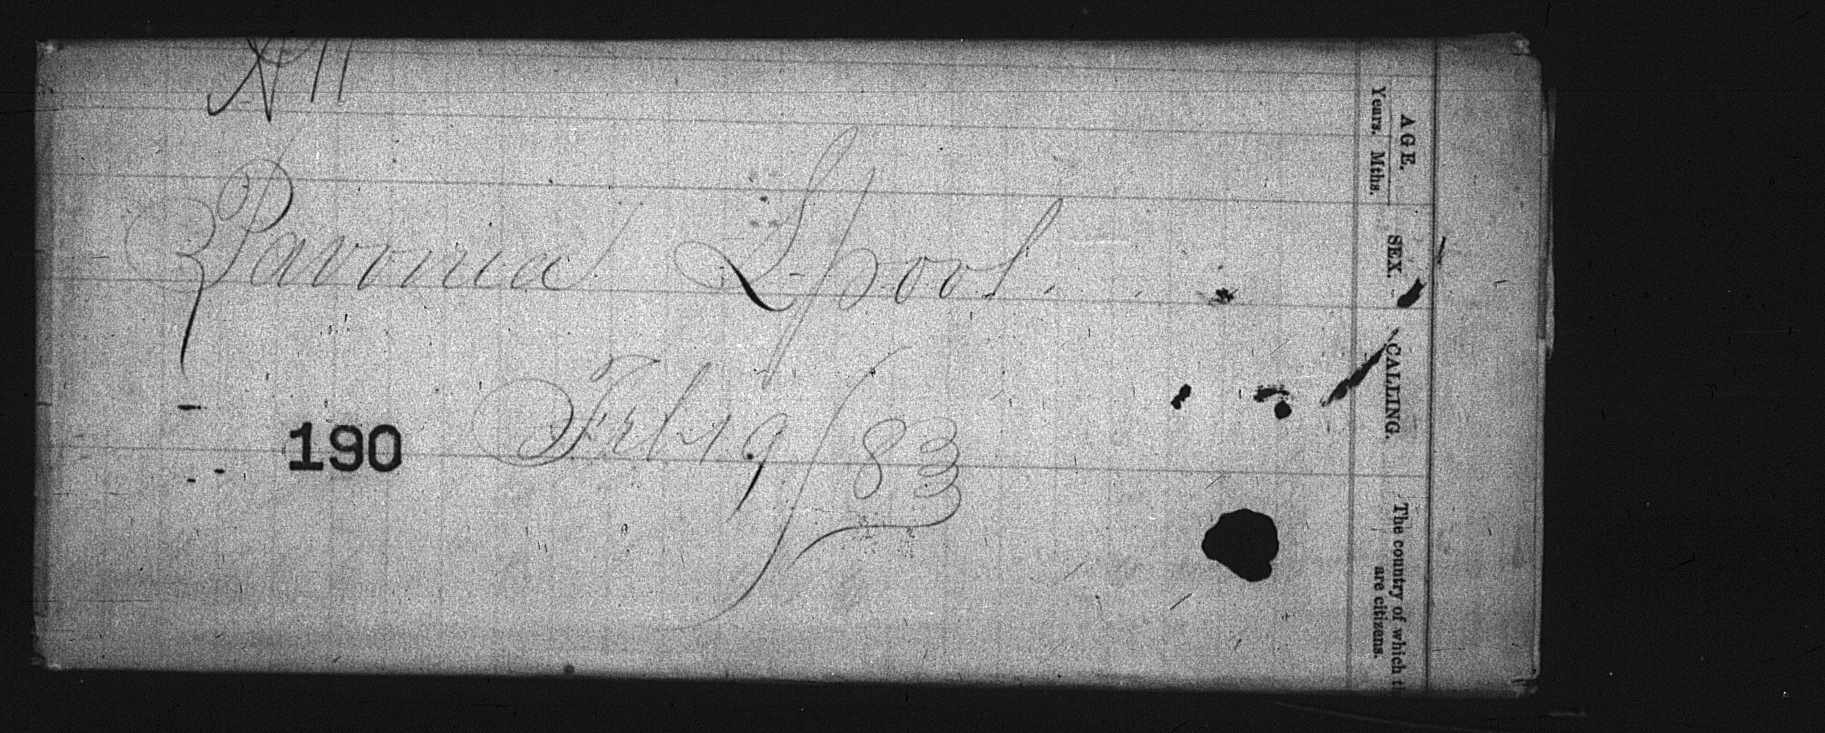 Pavonia L-pool.
Feb 19/83
190
AGE.
Years. Mths.
SEX.
CALLING.
The country of which t
are citizens.